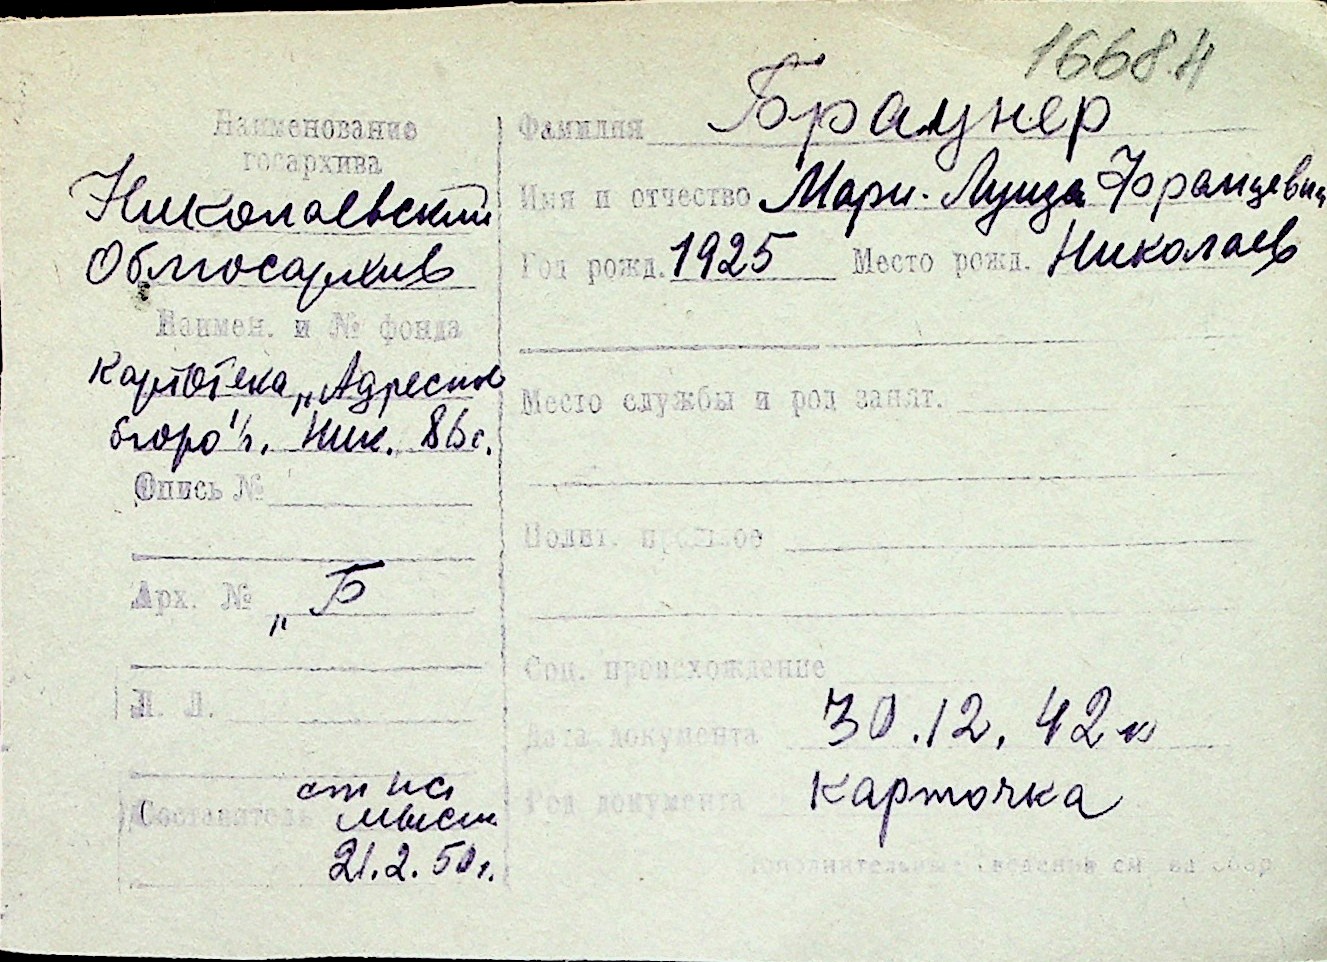 16684
Наименование
госархива
Николаевский
Облгосархив
Наимен. и № фонда
картотека „Адресное
бюро“. Ник.
Опись №
Арх. № „Б
Л. Л.
Составитель
21.2.50г.
Фамилия Браунер
Имя и отчество Мари-Луиза Францевна
Год рожд. 1925 Место рожд. Николаев
Место службы и род занят.
Полит. прошлое
Соц. происхождение
Дата документа 30.12.42г
Род документа карточка
Дополнительные сведения см. на обор